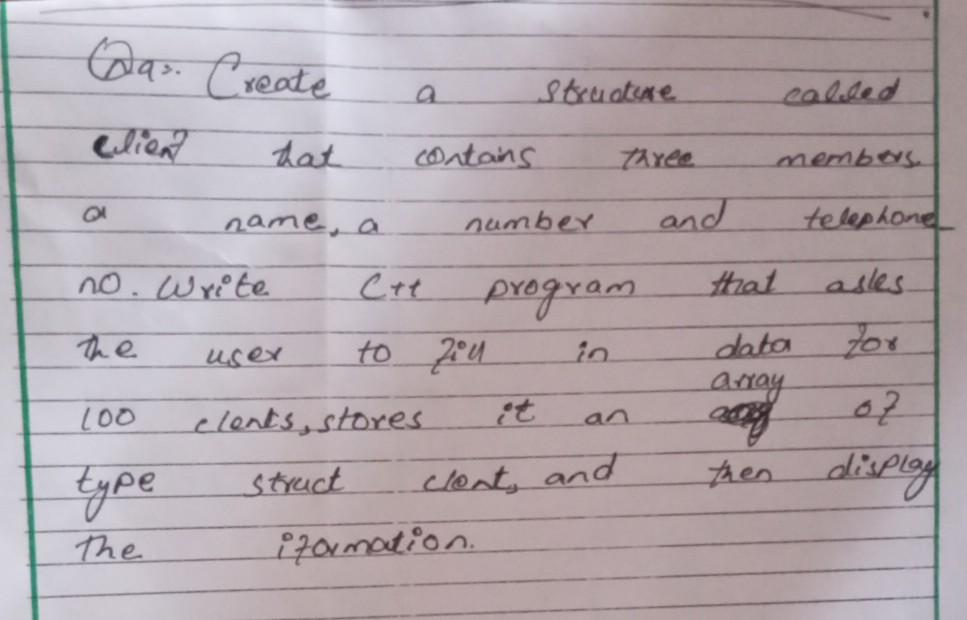 Qa:. Create a structure called
client that contains three members.
a name, a number and telephone
no. Write C++ program that asks
the user to fill in data for
100 clents, stores it an array of
type struct clent, and then display
the iformation.